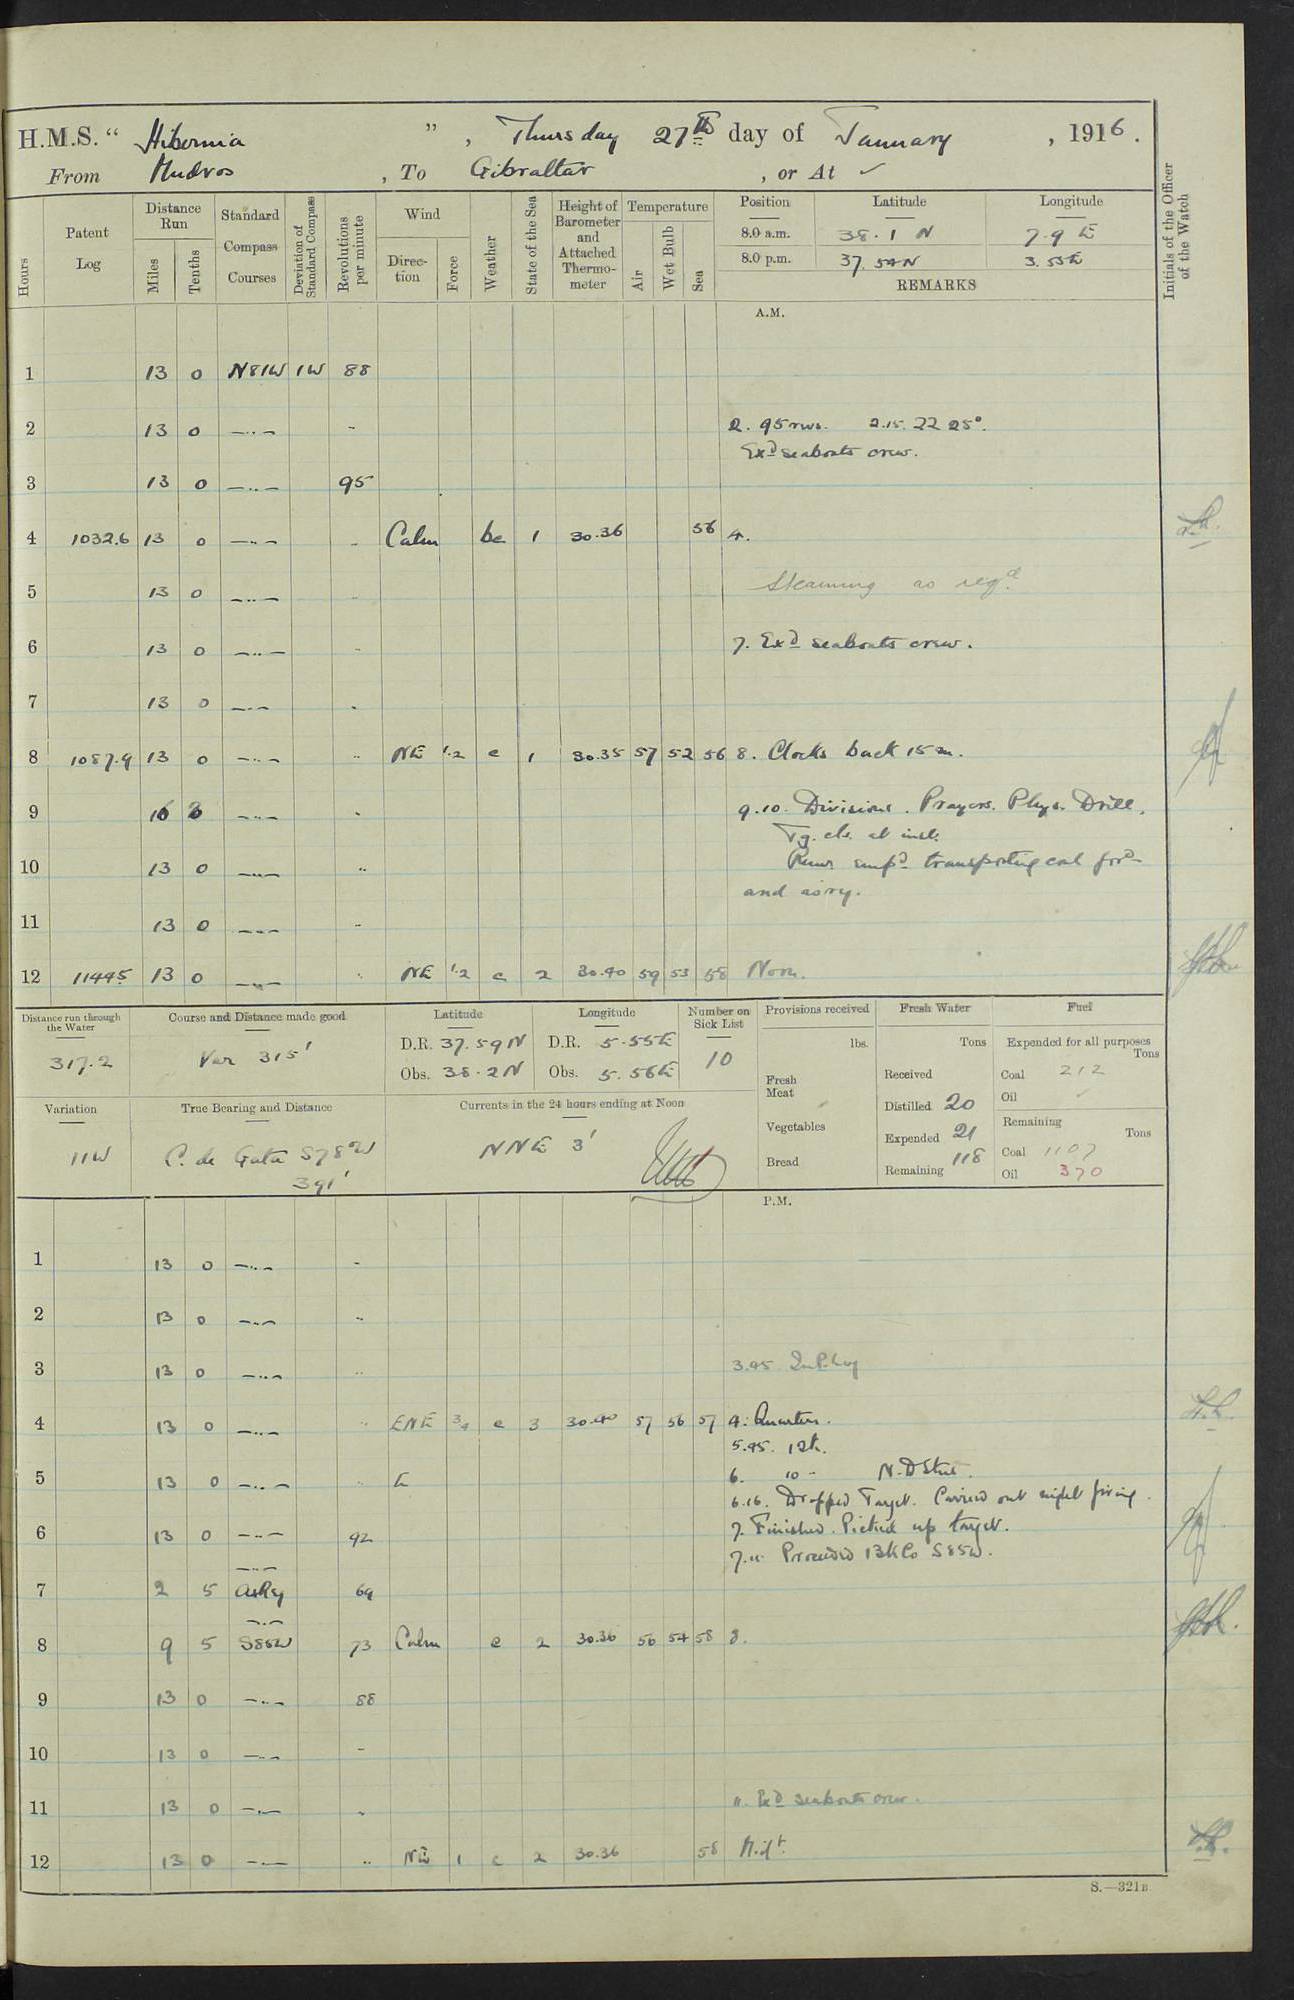 H.M.S. “ Hibernia ” , Thursday 27th day of January , 1916.
From Mudros , To Gibraltar , or At ✓
Hours
Patent Log
Distance Run
Miles
Tenths
Standard Compass Courses
Deviation of Standard Compass
Revolutions per minute
Wind
Direction
Force
Weather
State of the Sea
Height of Barometer and Attached Thermometer
Temperature
Air
Wet Bulb
Sea
Position Latitude Longitude
8.0 a.m. 38.1 N 7.9 E
8.0 p.m. 37.54 N 3.53 E
REMARKS
Initials of the Officer of the Watch
A.M.
1 13 0 N81W 1W 88
2 13 0 —..— " 2. 95 revs. 2.15. 22 25°.
Exd seaboats crew.
3 13 0 —..— 95
4 1032.6 13 0 —..— " Calm bc 1 30.36 56 4.
5 13 0 —..— " Steaming as reqd.
6 13 0 —..— " 7. Exd seaboats crew.
7 13 0 —..— "
8 1087.9 13 0 —..— " NE 1.2 c 1 30.35 57 52 56 8. Clocks back 15 m.
9 —..— " 9.10. Divisions. Prayers. Phys. Drill.
Tg. cls. at inst.
10 13 0 —..— " empd transporting coal ford
and
11 13 0 —..— "
12 1144.5 13 0 —..— " NE 1.2 c 2 30.40 59 53 58 Noon.
Distance run through the Water
317.2
Course and Distance made good
Var 315'
Latitude
D.R. 37.59 N
Obs. 38.2 N
Longitude
D.R. 5.55 E
Obs. 5.56 E
Number on Sick List
10
Provisions received
lbs.
Fresh Meat
Vegetables
Bread
Fresh Water
Tons
Received
Distilled 20
Expended 21
Remaining 118
Fuel
Expended for all purposes
Tons
Coal 212
Oil ✓
Remaining
Tons
Coal 1107
Oil 370
Variation
11W
True Bearing and Distance
C. de Gata S78W
391'
Currents in the 24 hours ending at Noon
NNE 3'
P.M.
1 13 0 —..— "
2 13 0 —..— "
3 13 0 —..— " 3.45
4 13 0 —..— " ENE 3/4 c 3 30.40 57 56 57 4. Quarters.
5.45. 12k.
5 13 0 —..— " E 6. 10 " N.D Stns.
6.16. Dropped Target. Carried out night firing.
6 13 0 —..— 92 7. Finished. Picked up target.
7.11. Proceeded 13k Co S85W.
—..—
7 2 5 69
—..—
8 9 5 S85W 73 Calm c 2 30.36 56 54 58 8.
9 13 0 —..— 88
10 13 0 —..— "
11 13 0 —..— " 11. Exd seaboats crew.
12 13 0 —..— " 1 c 2 30.36 58 Midt.
S.—321B